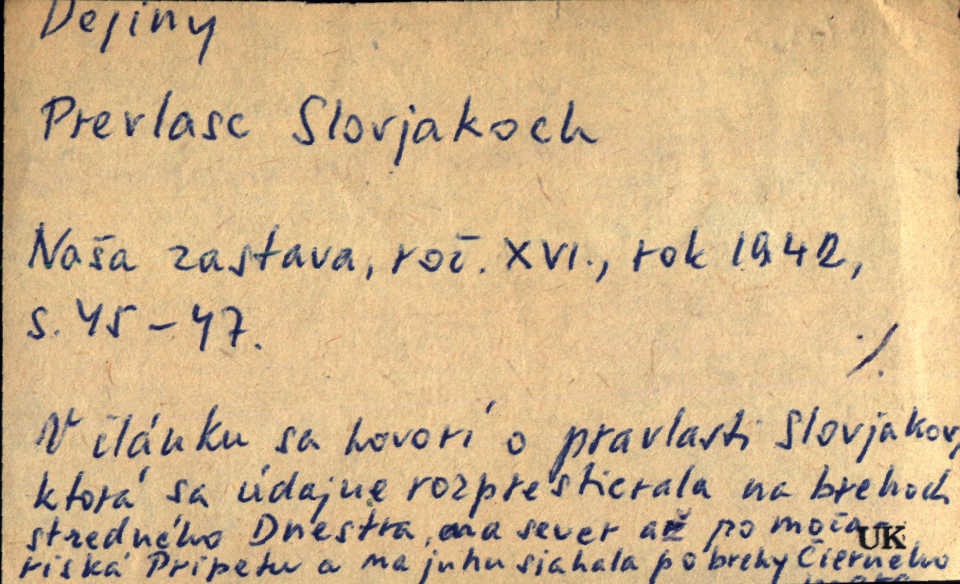 Dejiny
Prevlasc Slovjakoch
Naša zastava, roč. XVI., rok 1942,
s. 45-47.
./.
V článku sa hovorí o pravlasti Slovjakov,
ktorá sa údajne rozprestierala na brehoch
stredného Dnestra, na sever až po moča-
riská Pripeťu a na juhu siahala po brehy Čierneho
UK